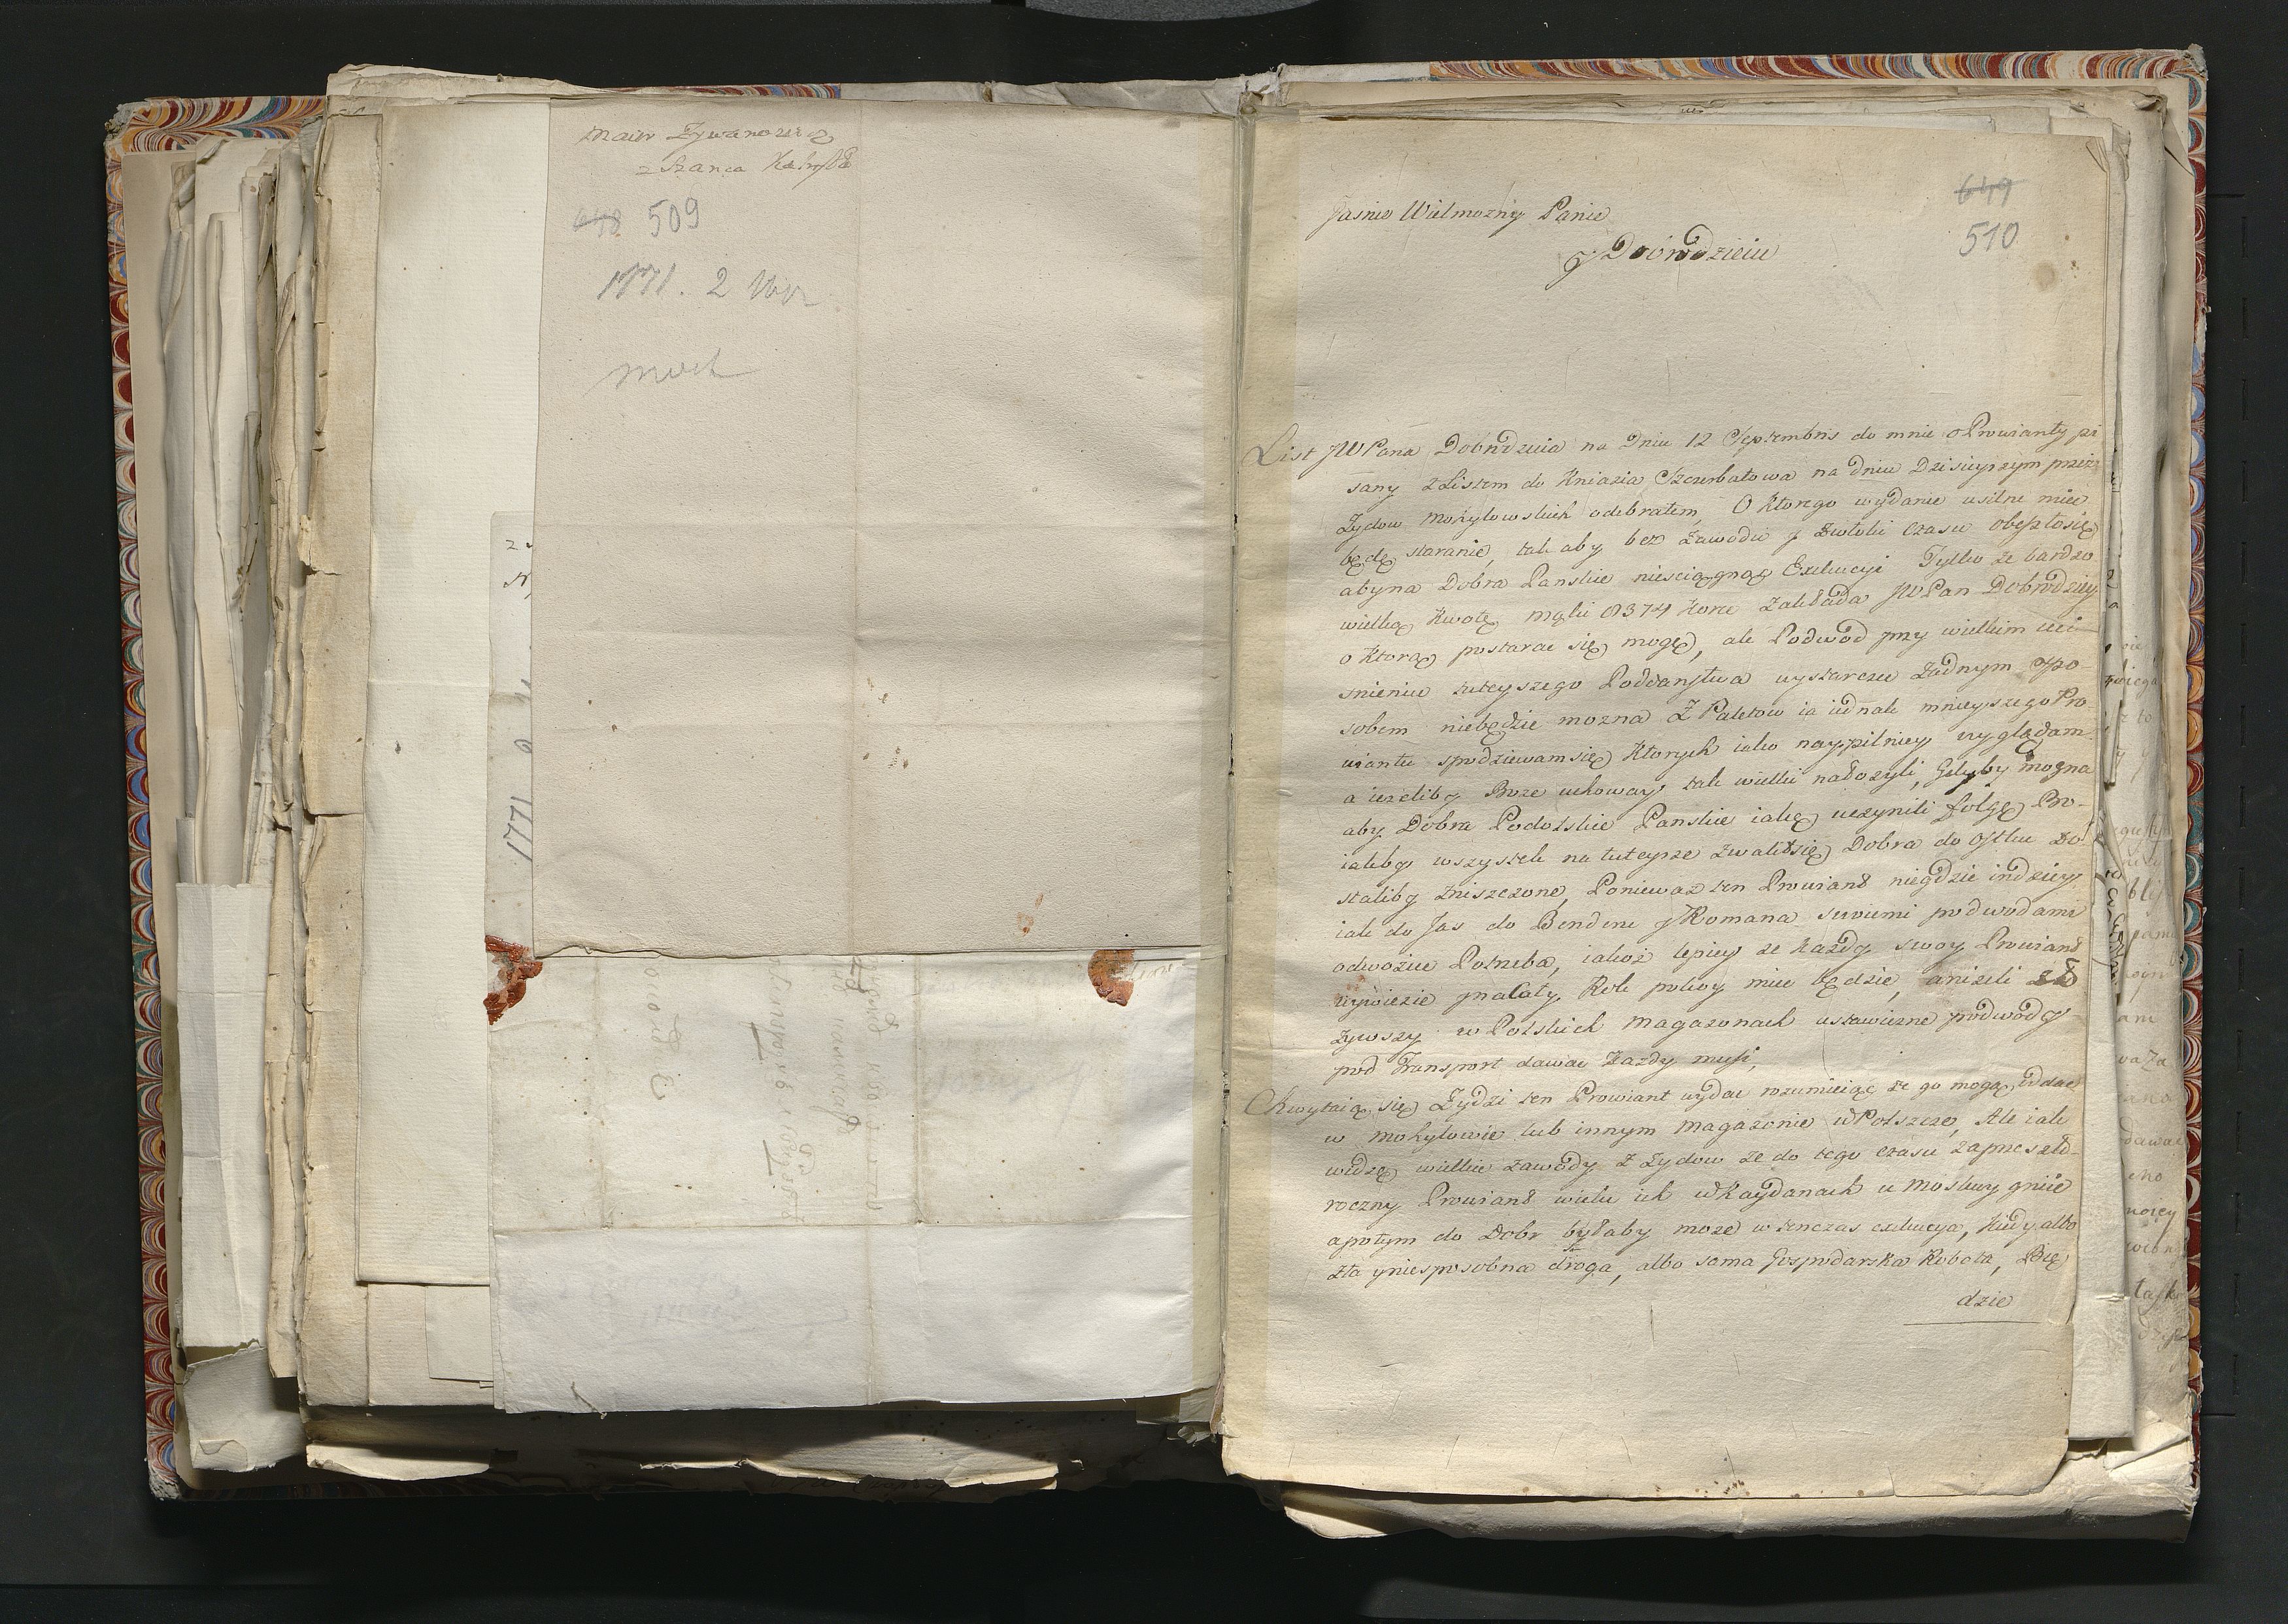 Maier Zywanowicz
z Szanca
648 509
1771. 2
1771
649
510
Jasnie Wielmozny Panie
y Dobrodzieiu
List JWPana Dobrodzieia na dniu 12 Septembris do mnie o Prowianty pi
sany z Listem do Kniazia Szczerbatowa na dniu dzisieyszym przez
Zydow Mohylowskich odebrałem, O ktorego wydanie usilne miec
będę staranie, tak aby bez zawodu y zwłoki czasu obeszłosię
abyna Dobra Panskie niesciągnąc Exekucyi Tylko ze bardzo
wielką kwotę mąki 8374 korce zakłada JWPan Dobrodziey
o ktorą postarac się mogę, ale Podwod przy wielkim uci
snieniu tuteyszego Poddanstwa wystarczec zadnym spo-
sobem niebędzie mozna Z Paletow ia iednak mnieyszego Pro-
wiantu spodziewamsię ktorych iako naypilniey wyglądam
a iezeliby Boze uchoway tak wielki nałozyli, Gdyby mozna
aby Dobra Podolskie Panskie iaką uczynili folgę Bo-
iakby wszystek na tuteysze zwaliłsię Dobra do Ostku zo
staliby zniszczone, Poniewaz ten Prowiant niegdzie indziey
iak do Jas do Benderu y Romana swoiemi podwodami
odwozic Potrzeba, iakoz lepiey ze kazdy swoy Prowiant
wywiezie y nacały Rok pokoy miec będzie, anizeli
zywszy w Polskich Magazonach ustawiczne podwody
pod Transport dawac kazdy musi,
Chwytaią się Zydzi ten Prowiant wydac rozumieiąc ze go mogą oddac
w Mohylowie lub innym Magazonie w Polszcze, Ale iak
widzę wielkie zawody z Zydow ze do tego czasu zaprzeszło-
roczny Prowiant wielu ich w Kaydanach u Moskwy gniie
apotym do Dobr byłaby moze wtenczas exekucya, kiedy albo
zła y niesposobna droga, albo sama Gospodarska Robota, Bę
dzie